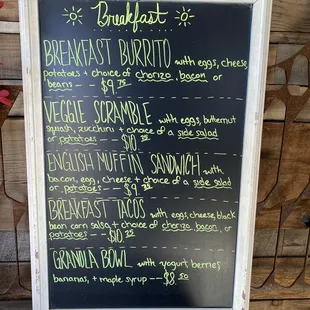 Breakfast
BREAKFAST BURRITO with eggs, cheese,
potatoes + choice of chorizo, bacon, or
beans -- $9.75
VEGGIE SCRAMBLE with eggs, butternut
squash, zucchini + choice of a side salad
or potatoes -- $10.
ENGLISH MUFFIN SANDWICH with
bacon, egg, cheese + choice of a side salad
or potatoes -- $9.
BREAKFAST TACOS with eggs, cheese, black
bean corn salsa + choice of chorizo, bacon, or
potatoes -- $10.
GRANOLA BOWL with yogurt, berries,
bananas, + maple syrup -- $8.50